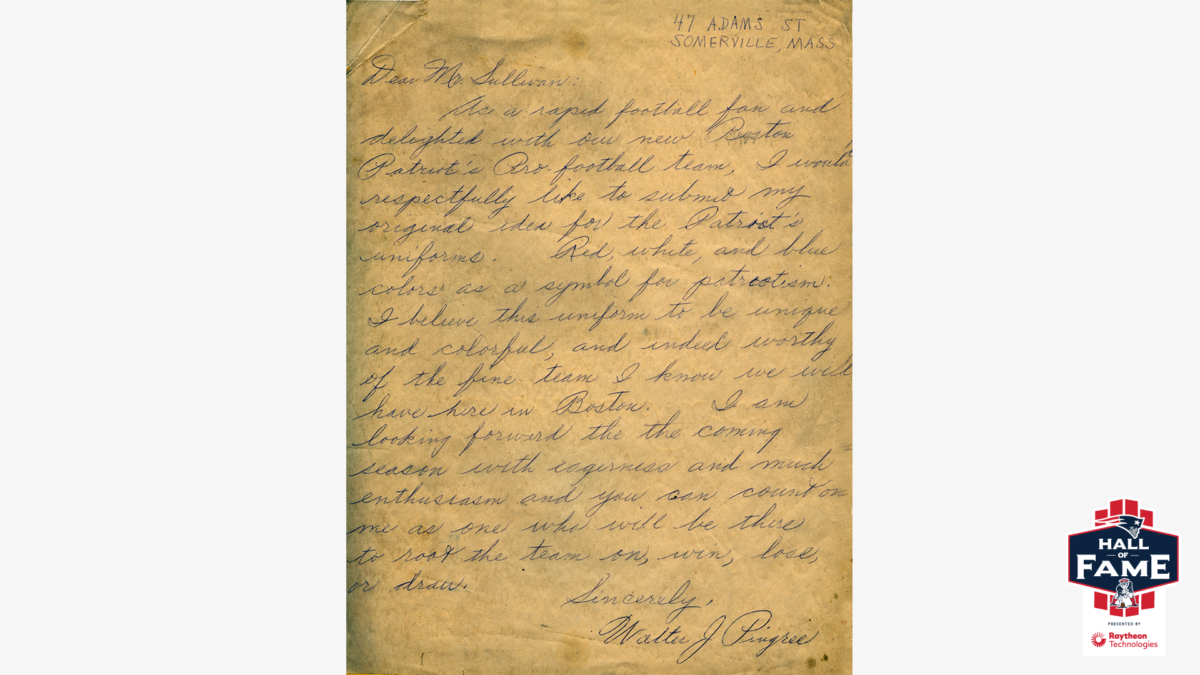 47 ADAMS ST
SOMERVILLE, MASS
Dear Mr. Sullivan:
As a rapid football fan and
delighted with our new Boston
Patriot's Pro-football team, I would
respectfully like to submit my
original idea for the Patriot's
uniforms. Red, white, and blue
colors as a symbol for patriotism.
I believe this uniform to be unique
and colorful, and indeed worthy
of the fine team I know we will
have here in Boston. I am
looking forward the the coming
season with eagerness and much
enthusiasm and you can count on
me as one who will be there
to root the team on, win, lose,
or draw.
Sincerely,
Walter J Pingree
HALL
OF
FAME
PRESENTED BY
Raytheon
Technologies